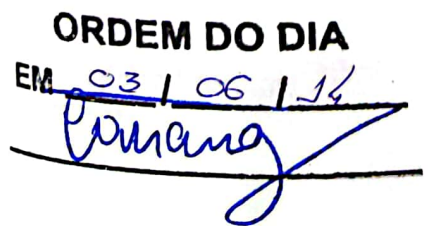 ORDEM DO DIA
EM 03 / 06 / 14